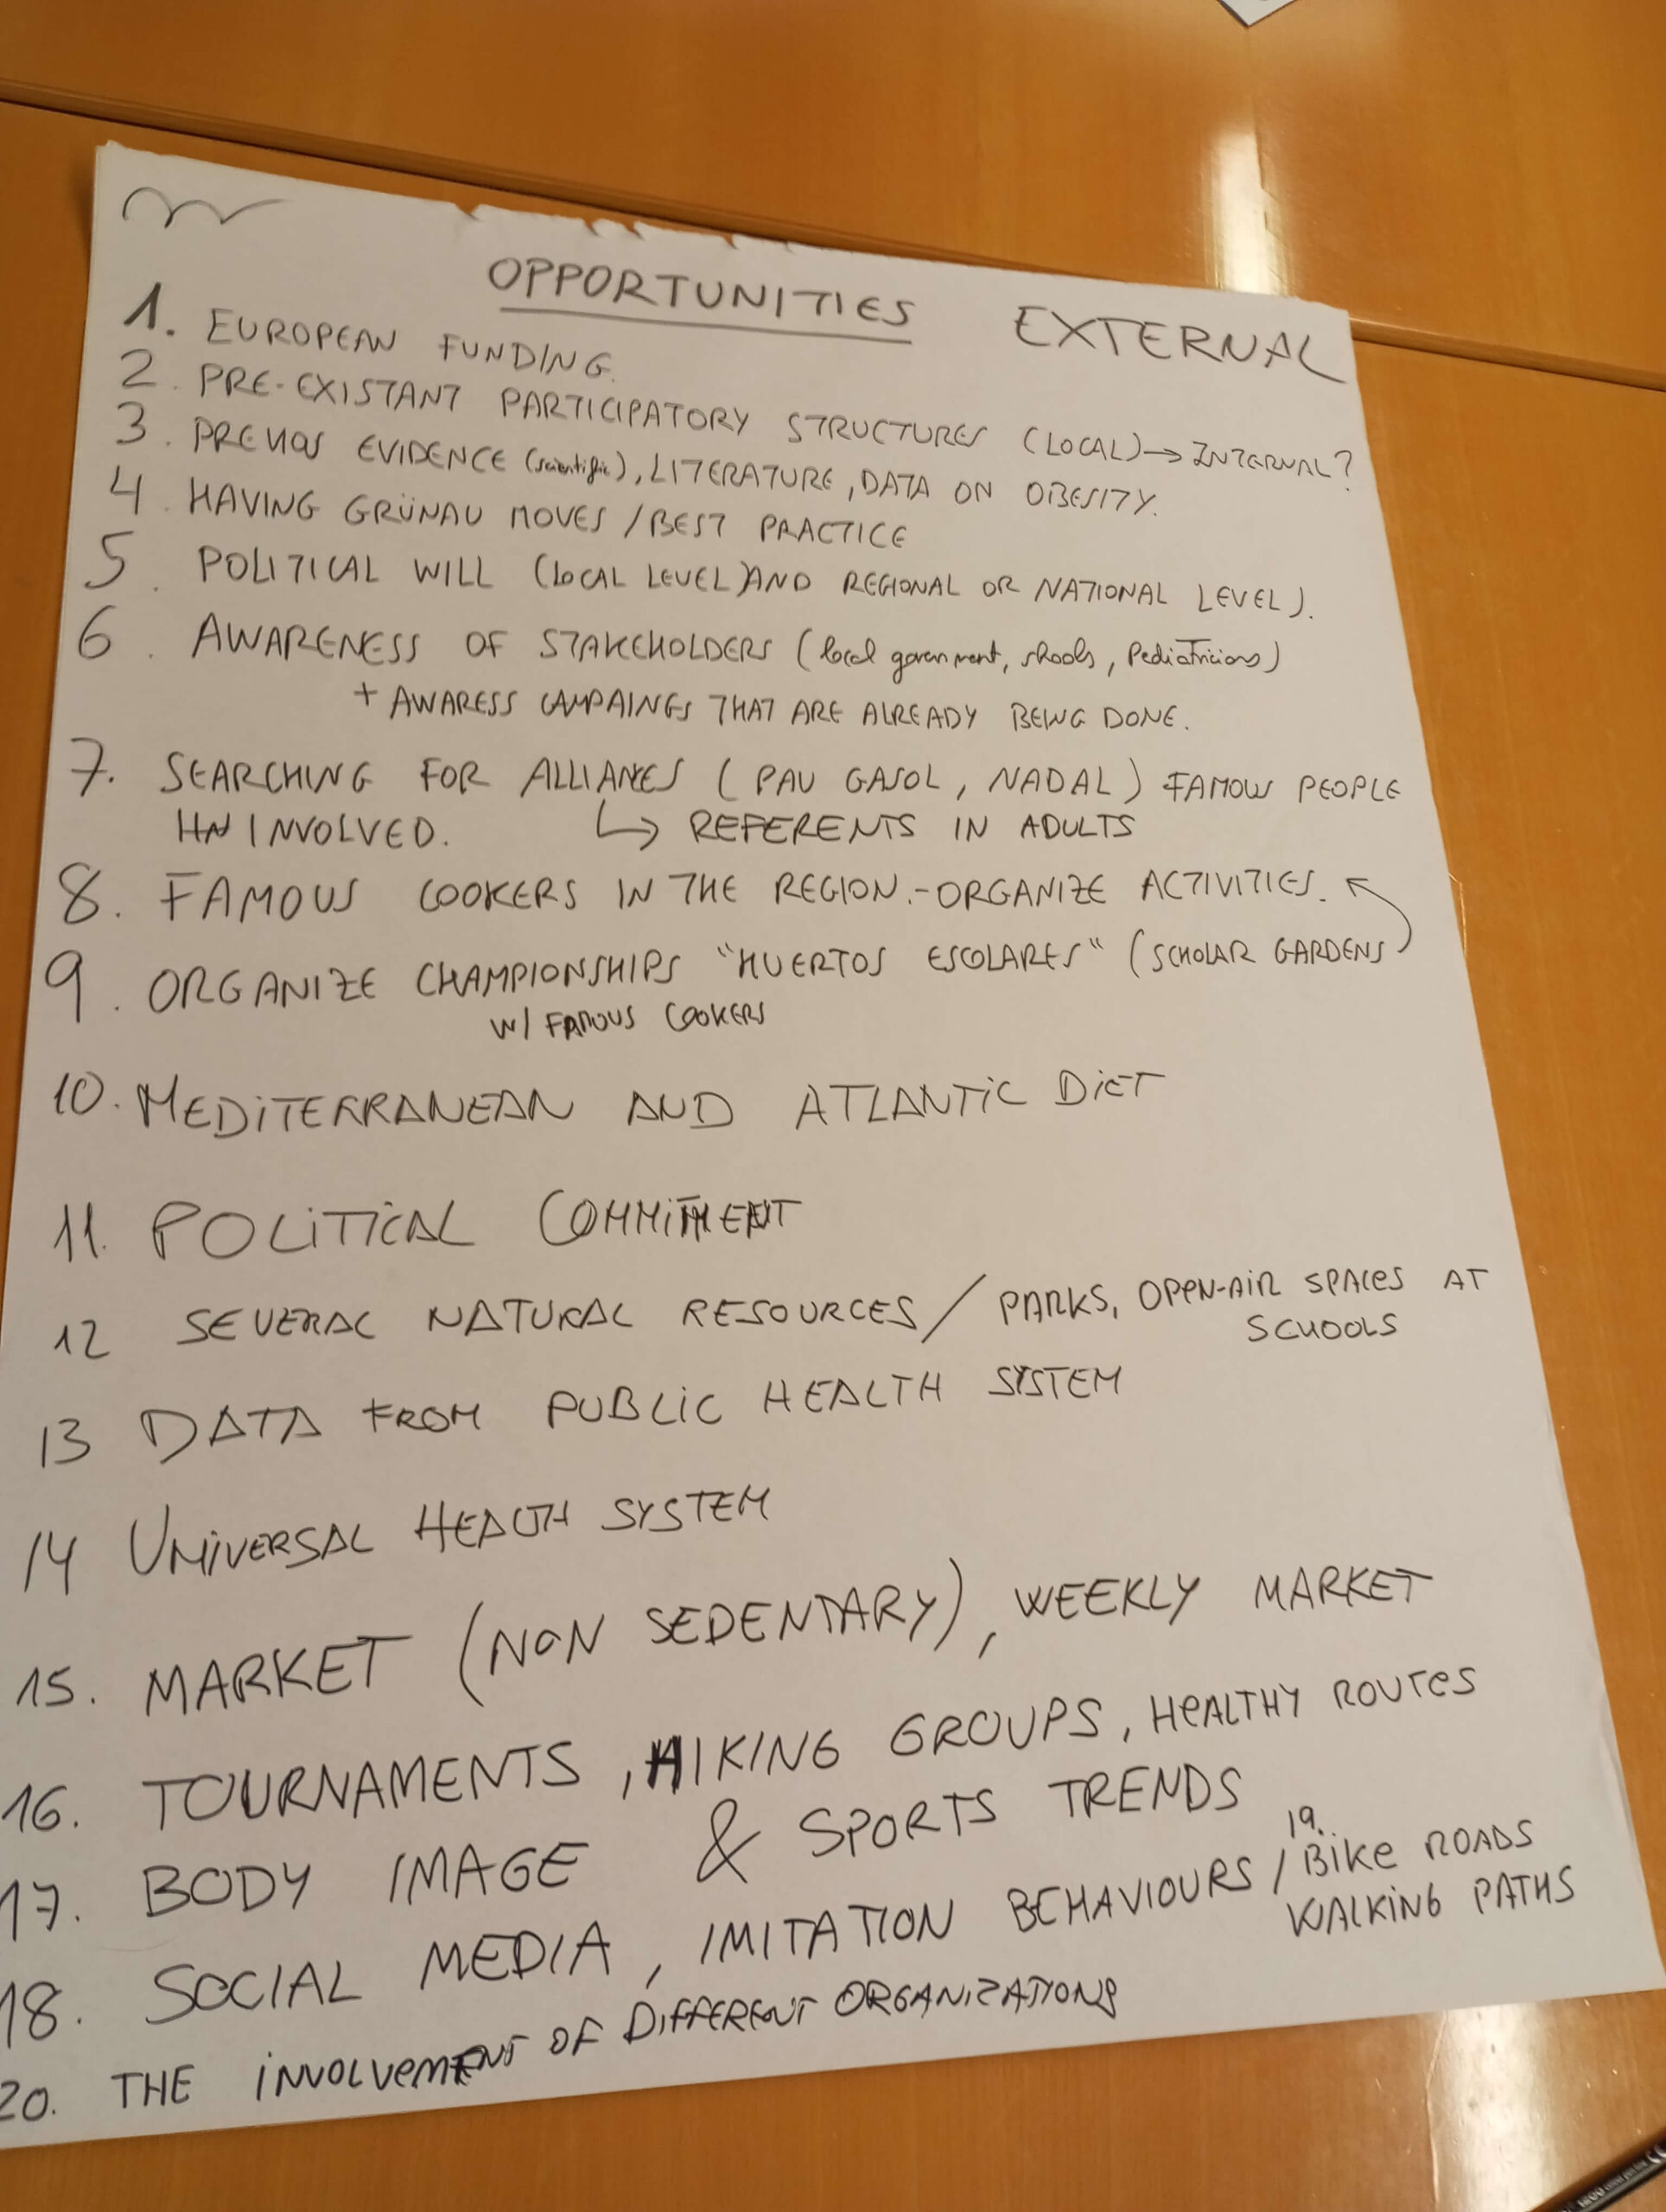 OPPORTUNITIES EXTERNAL
1. EUROPEAN FUNDING.
2. PRE-EXISTANT PARTICIPATORY STRUCTURES (LOCAL) → INTERNAL?
3. PREVIOS EVIDENCE (scientific), LITERATURE, DATA ON OBESITY.
4. HAVING GRÜNAU MOVES / BEST PRACTICE
5. POLITICAL WILL (LOCAL LEVEL) AND REGIONAL OR NATIONAL LEVEL).
6. AWARENESS OF STAKEHOLDERS (local government, shools, Pediatricians)
+ AWARESS CAMPAINGS THAT ARE ALREADY BEING DONE.
7. SEARCHING FOR ALLIANCES (PAU GASOL, NADAL) FAMOUS PEOPLE
INVOLVED. ↳ REFERENTS IN ADULTS
8. FAMOUS COOKERS IN THE REGION.-ORGANIZE ACTIVITIES.
9. ORGANIZE CHAMPIONSHIPS "HUERTOS ESCOLARES" (SCHOLAR GARDENS
W/ FAMOUS COOKERS
10. MEDITERRANEAN AND ATLANTIC DIET
11. POLITICAL COMMITMENT
12 SEVERAL NATURAL RESOURCES / PARKS, OPEN-AIR SPACES AT
SCHOOLS
13 DATA FROM PUBLIC HEALTH SYSTEM
14 UNIVERSAL HEALTH SYSTEM
15. MARKET (NON SEDENTARY), WEEKLY MARKET
16. TOURNAMENTS, HIKING GROUPS, HEALTHY ROUTES
17. BODY IMAGE & SPORTS TRENDS
18. SOCIAL MEDIA, IMITATION BEHAVIOURS / 19. BIKE ROADS
WALKING PATHS
20. THE INVOLVEMENT OF DIFFERENT ORGANIZATIONS